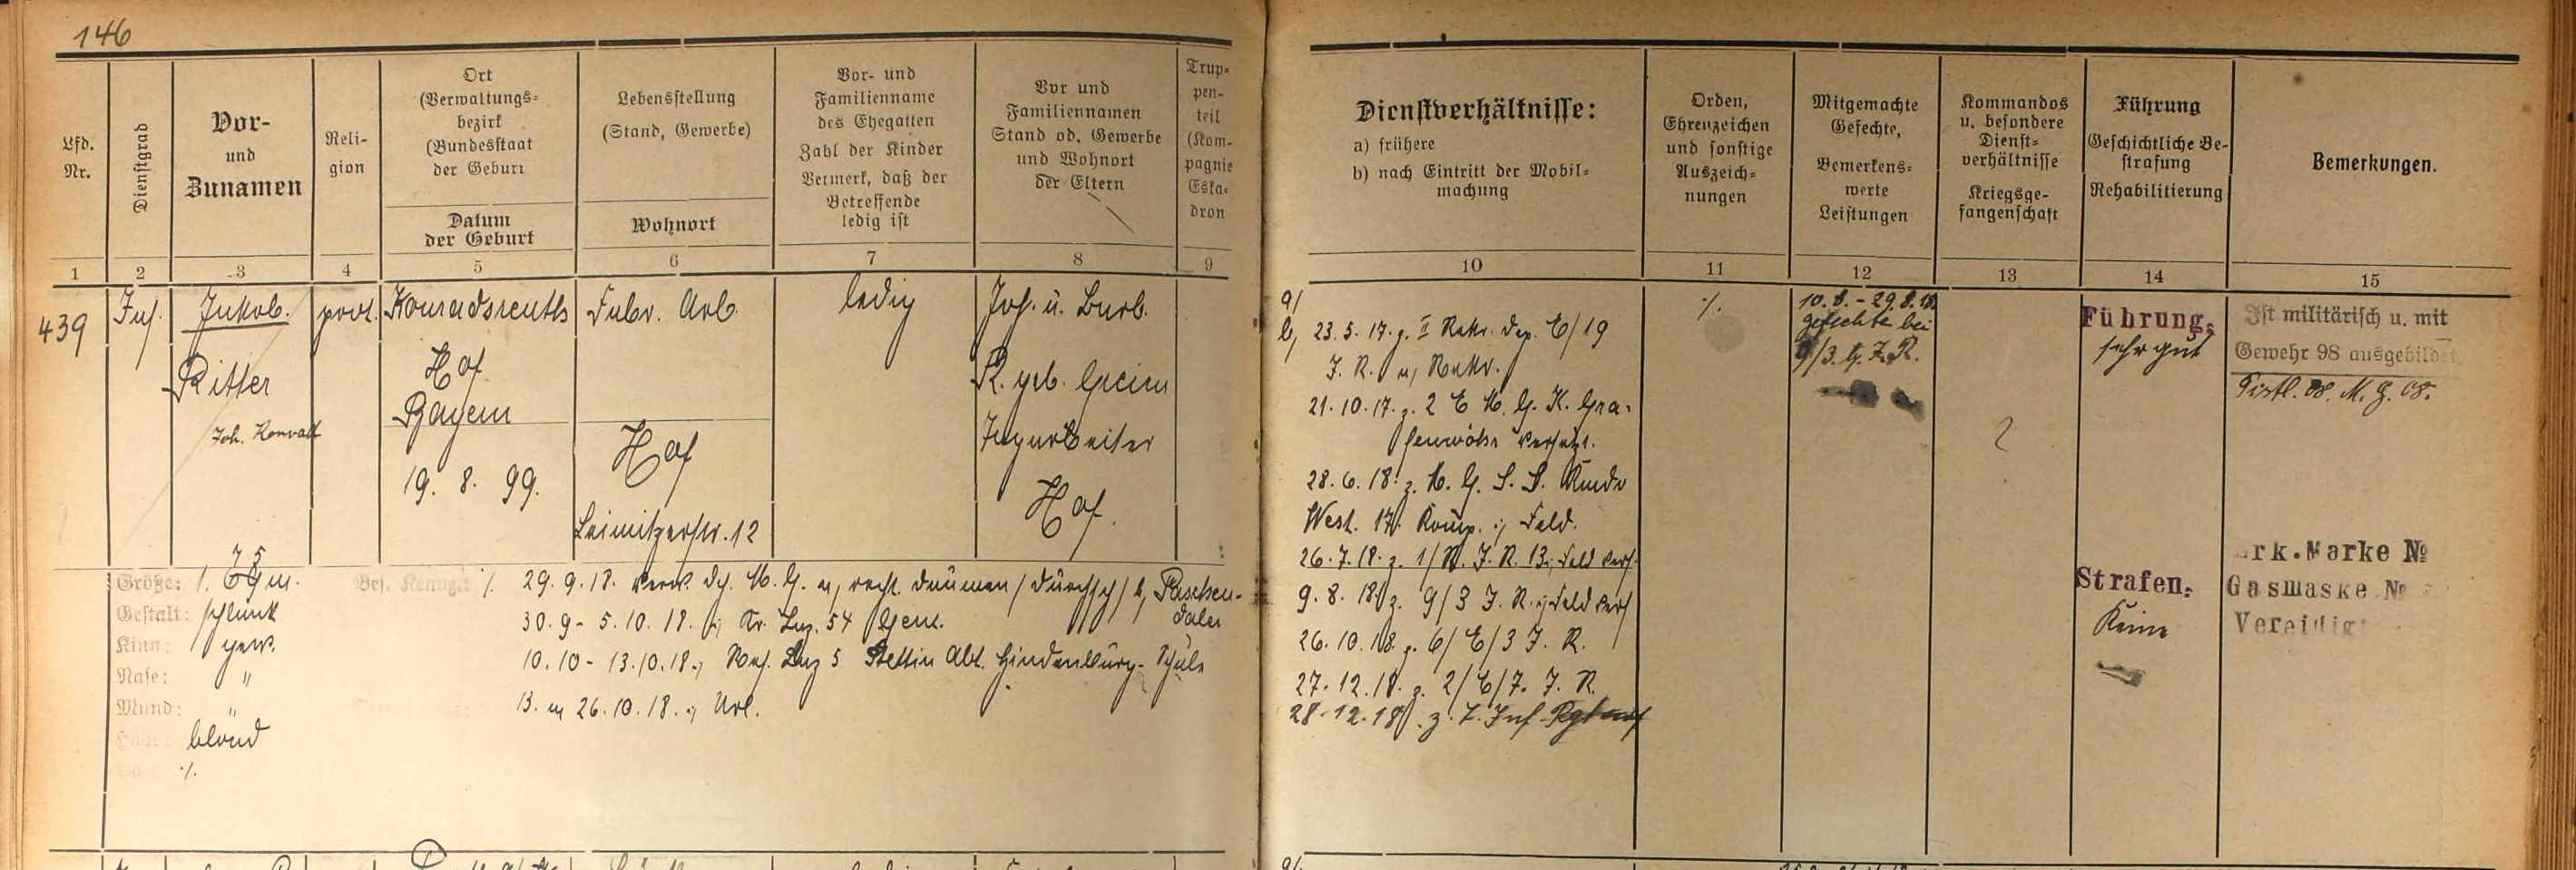 146
Lfd.
Nr.
Dienstgrad
Vor-
und
Zunamen
Reli-
gion
Ort
(Verwaltungs-
bezirk
(Bundesstaat
der Geburt
Datum
der Geburt
Lebensstellung
(Stand, Gewerbe)
Wohnort
Vor- und
Familienname
des Ehegatten
Zahl der Kinder
Vermerk, daß der
Betreffende
ledig ist
Vor und
Familiennamen
Stand od. Gewerbe
und Wohnort
der Eltern
Trup-
pen-
teil
(Kom-
pagnie
Eska-
dron
1 2 3 4 5 6 7 8 9
439
Inf.
Jakob
Ritter
Joh.
prot.
Konradsreuth
Hof
Bayern
19. 8. 99.
Fabr. Arb.
Hof
Leimitzerstr. 12
ledig
Joh. u. Barb.
R. geb.
Hof.
Größe: 1. m.
Gestalt: schlank
Kinn: gew.
Nase: "
Mund: "
blond
./.
Bes. Kennz.: ./.
29. 9. 18. verw. dch. M. G. r, recht. Daumen / Durchsch / b, Paschen-
daler
30. 9 - 5. 10. 18. i, Kr. Laz. 54 Gent.
10. 10 - 13. 10. 18. i, Res. Laz 5 Stettin Abt. Hindenburg-Schule
13. 26. 10. 18. i, Url.
Dienstverhältnisse:
a) frühere
b) nach Eintritt der Mobil-
machung
Orden,
Ehrenzeichen
und sonstige
Auszeich-
nungen
Mitgemachte
Gefechte,
Bemerkens-
werte
Leistungen
Kommandos
u. besondere
Dienst-
verhältnisse
Kriegsge-
fangenschaft
Führung
Geschichtliche Be-
strafung
Rehabilitierung
Bemerkungen.
10 11 12 13 14 15
a/
b, 23. 5. 17. z. II Rekr. Dep. E/19
J. R. Rekr.
21. 10. 17. z. 2 E M. G. K. Gra-
fenwöhr versetzt.
28. 6. 18. z. M. G. S. S.
West. 17. Komp. i, Feld.
26. 7. 18. z. 1/R. J. R. 13 i, Feld vers.
9. 8. 18 z. 9/3 J. R. i, Feld vers
26. 10. 18 z. 6/E/3 J. R.
27. 12. 18. z. 2/E/7. J. R.
28. 12. 18 z. 7. Inf
./.
10. 8. - 29. 8. 18.
gefechte bei
9/3. b. J. R.
Führung:
sehr gut
Strafen:
Keine
Ist militärisch u. mit
Gewehr 98 ausgebildet
Pistl. 08. M. G. 08.
Erk. Marke №
Gasmaske №
Vereidigt